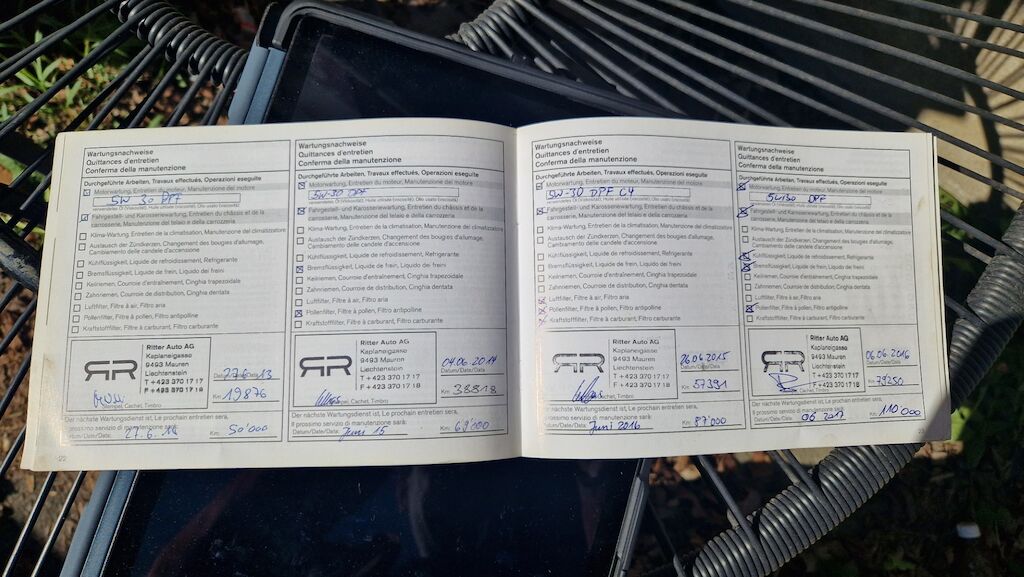 Wartungsnachweise
Quittances d'entretien
Conferma della manutenzione
Durchgeführte Arbeiten, Travaux effectués, Operazioni eseguite
Motorwartung, Entretien du moteur, Manutenzione del motore
5W 30 DPF
Fahrgestell- und Karosseriewartung, Entretien du châssis et de la
carrosserie, Manutenzione del telaio e della carrozzeria
Klima-Wartung, Entretien de la climatisation, Manutenzione del climatizzatore
Austausch der Zündkerzen, Changement des bougies d'allumage,
Cambiamento delle candele d'accensione
Kühlflüssigkeit, Liquide de refroidissement, Refrigerante
Bremsflüssigkeit, Liquide de frein, Liquido dei freini
Keilriemen, Courroie d'entraînement, Cinghia trapezoidale
Zahnriemen, Courroie de distribution, Cinghia dentata
Luftfilter, Filtre à air, Filtro aria
Pollenfilter, Filtre à pollen, Filtro antipolline
Kraftstofffilter, Filtre à carburant, Filtro carburante
RR
Ritter Auto AG
Kaplaneigasse
9493 Mauren
Liechtenstein
T +423 370 17 17
F +423 370 17 18
27.6.13
Km: 19876
Stempel, Cachet, Timbro
Der nächste Wartungsdienst ist, Le prochain entretien sera,
Il prossimo servizio di manutenzione sarà:
Datum/Date/Data: 27.6.14 Km: 50'000
22
Wartungsnachweise
Quittances d'entretien
Conferma della manutenzione
Durchgeführte Arbeiten, Travaux effectués, Operazioni eseguite
Motorwartung, Entretien du moteur, Manutenzione del motore
5W-30 DPF
Fahrgestell- und Karosseriewartung, Entretien du châssis et de la
carrosserie, Manutenzione del telaio e della carrozzeria
Klima-Wartung, Entretien de la climatisation, Manutenzione del climatizzatore
Austausch der Zündkerzen, Changement des bougies d'allumage,
Cambiamento delle candele d'accensione
Kühlflüssigkeit, Liquide de refroidissement, Refrigerante
Bremsflüssigkeit, Liquide de frein, Liquido dei freini
Keilriemen, Courroie d'entraînement, Cinghia trapezoidale
Zahnriemen, Courroie de distribution, Cinghia dentata
Luftfilter, Filtre à air, Filtro aria
Pollenfilter, Filtre à pollen, Filtro antipolline
Kraftstofffilter, Filtre à carburant, Filtro carburante
RR
Ritter Auto AG
Kaplaneigasse
9493 Mauren
Liechtenstein
T +423 370 17 17
F +423 370 17 18
04.06.2014
Datum/Date/Data
Km: 38818
Stempel, Cachet, Timbro
Der nächste Wartungsdienst ist, Le prochain entretien sera,
Il prossimo servizio di manutenzione sarà:
Datum/Date/Data: Juni 15 Km:
Wartungsnachweise
Quittances d'entretien
Conferma della manutenzione
Durchgeführte Arbeiten, Travaux effectués, Operazioni eseguite
Motorwartung, Entretien du moteur, Manutenzione del motore
5W-30 DPF C4
Fahrgestell- und Karosseriewartung, Entretien du châssis et de la
carrosserie, Manutenzione del telaio e della carrozzeria
Klima-Wartung, Entretien de la climatisation, Manutenzione del climatizzatore
Austausch der Zündkerzen, Changement des bougies d'allumage,
Cambiamento delle candele d'accensione
Kühlflüssigkeit, Liquide de refroidissement, Refrigerante
Bremsflüssigkeit, Liquide de frein, Liquido dei freini
Keilriemen, Courroie d'entraînement, Cinghia trapezoidale
Zahnriemen, Courroie de distribution, Cinghia dentata
Luftfilter, Filtre à air, Filtro aria
Pollenfilter, Filtre à pollen, Filtro antipolline
Kraftstofffilter, Filtre à carburant, Filtro carburante
RR
Ritter Auto AG
Kaplaneigasse
9493 Mauren
Liechtenstein
T +423 370 17 17
F +423 370 17 18
26.06.2015
Datum/Date/Data
Km: 57391
Stempel, Cachet, Timbro
Der nächste Wartungsdienst ist, Le prochain entretien sera,
Il prossimo servizio di manutenzione sarà:
Datum/Date/Data: Juni 2016 Km: 87'000
Wartungsnachweise
Quittances d'entretien
Conferma della manutenzione
Durchgeführte Arbeiten, Travaux effectués, Operazioni eseguite
Motorwartung, Entretien du moteur, Manutenzione del motore
5W30 DPF
Fahrgestell- und Karosseriewartung, Entretien du châssis et de la
carrosserie, Manutenzione del telaio e della carrozzeria
Klima-Wartung, Entretien de la climatisation, Manutenzione del climatizzatore
Austausch der Zündkerzen, Changement des bougies d'allumage,
Cambiamento delle candele d'accensione
Kühlflüssigkeit, Liquide de refroidissement, Refrigerante
Bremsflüssigkeit, Liquide de frein, Liquido dei freini
Keilriemen, Courroie d'entraînement, Cinghia trapezoidale
Zahnriemen, Courroie de distribution, Cinghia dentata
Luftfilter, Filtre à air, Filtro aria
Pollenfilter, Filtre à pollen, Filtro antipolline
Kraftstofffilter, Filtre à carburant, Filtro carburante
RR
Ritter Auto AG
Kaplaneigasse
9493 Mauren
Liechtenstein
T +423 370 17 17
F +423 370 17 18
06.06.2016
Datum/Date/Data
Km: 79250
Stempel, Cachet, Timbro
Der nächste Wartungsdienst ist, Le prochain entretien sera,
Il prossimo servizio di manutenzione sarà:
Datum/Date/Data: 06.2017 Km: 110'000
23